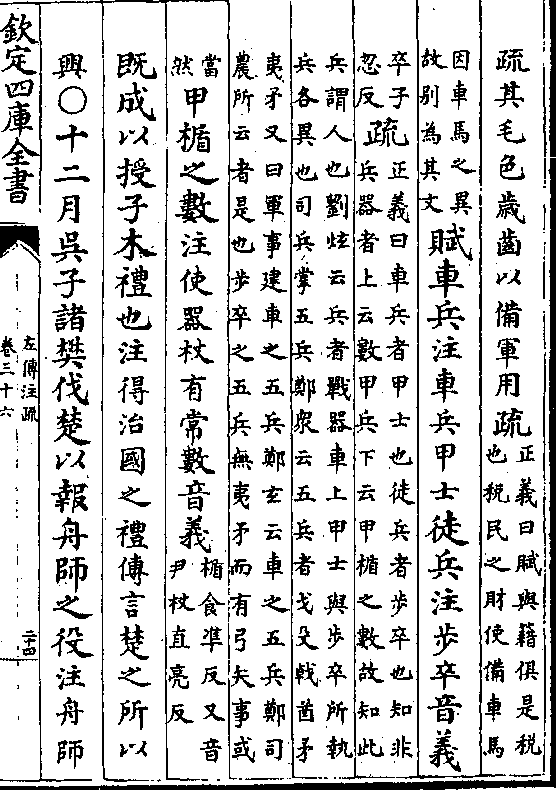 疏其毛色歲齒以備軍用疏正義曰賦與籍俱是稅
也稅民之財使備車馬
因車馬之異
故别為其文賦車兵注車兵甲士徒兵注步卒音義
卒子
忽反疏正義曰車兵者甲士也徒兵者步卒也知非
兵器者上云數甲兵下云甲楯之數故知此
兵謂人也劉炫云兵者戰器車上甲士與步卒所執
兵各異也司兵掌五兵鄭衆云五兵者戈殳戟酋矛
夷矛又曰軍事建車之五兵鄭玄云車之五兵鄭司
農所云者是也步卒之五兵無夷矛而有弓矢事或
當
然甲楯之數注使器杖有常數音義楯食凖反又音
尹杖直亮反
既成以授子木禮也注得治國之禮傳言楚之所以
興○十二月吳子諸樊伐楚以報舟師之役注舟師
欽定四庫全書
左傳注疏
卷三十六
二十四